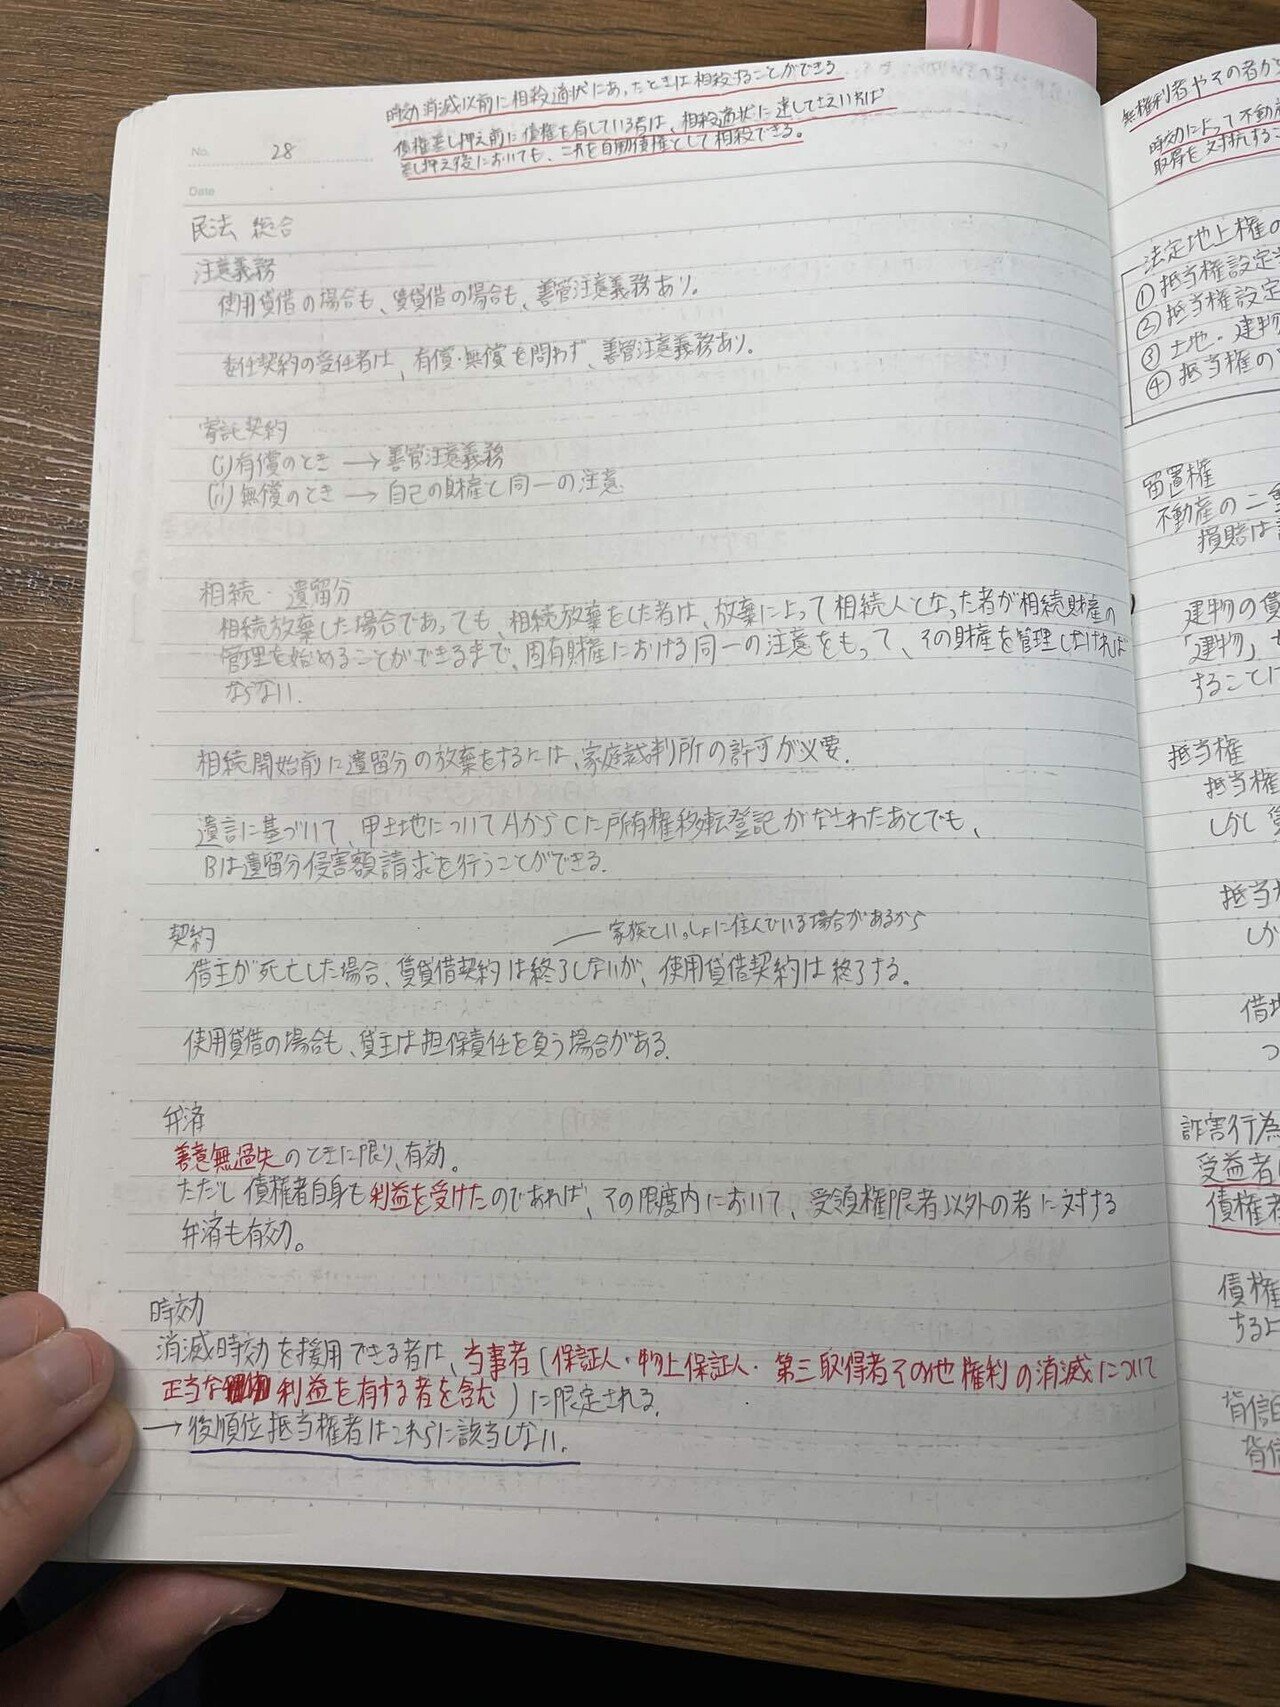 時効消滅以前に相殺適状にあったときは相殺することができる
債権差し押え前に債権を有している者は、相殺適状に達してさえいれば
差し押え後においても、これを自働債権として相殺できる。
No. 28
Date
民法 総合
注意義務
使用貸借の場合も、賃貸借の場合も、善管注意義務あり。
委任契約の受任者は、有償・無償を問わず、善管注意義務あり。
寄託契約
(i)有償のとき → 善管注意義務
(ii)無償のとき → 自己の財産と同一の注意
相続・遺留分
相続放棄した場合であっても、相続放棄をした者は、放棄によって相続人となった者が相続財産の
管理を始めることができるまで、固有財産における同一の注意をもって、その財産を管理しなければ
ならない.
相続開始前に遺留分の放棄をするには、家庭裁判所の許可が必要.
遺言に基づいて、甲土地についてAからCに所有権移転登記がなされたあとでも、
Bは遺留分侵害額請求を行うことができる.
契約
家族といっしょに住んでいる場合があるから
借主が死亡した場合、賃貸借契約は終了しないが、使用貸借契約は終了する。
使用貸借の場合も、貸主は担保責任を負う場合がある.
弁済
善意無過失のときに限り、有効。
ただし債権者自身も利益を受けたのであれば、その限度内において、受領権限者以外の者に対する
弁済も有効。
時効
消滅時効を援用できる者は、当事者(保証人・物上保証人・第三取得者その他権利の消滅について
正当な利益を有する者を含む)に限定される.
→後順位抵当権者はこれらに該当しない.
無権利者やその者か
時効によって不動産
取得を対抗するこ
法定地上権の
①抵当権設定
②抵当権設定
③土地・建物
④抵当権の
留置権
不動産の二重
損賠は
建物の賃
「建物」
することは
抵当権
抵当権
しかし
抵当
しか
借地
つ
詐害行為
受益者
債権者
債権
するよ
背信
背信